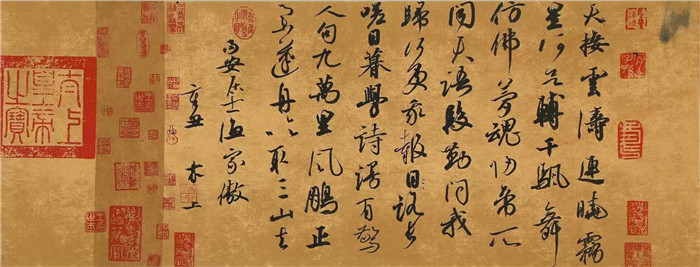 天接雲濤連曉霧
星河欲轉千帆舞
仿佛夢魂歸帝所
聞天語殷勤問我
歸何處我報曰路長
嗟日暮學詩謾有驚
人句九萬里風鵬正
舉蓬舟吹取三山去
易安居士漁家傲
辛丑 木上
太上皇帝之寶